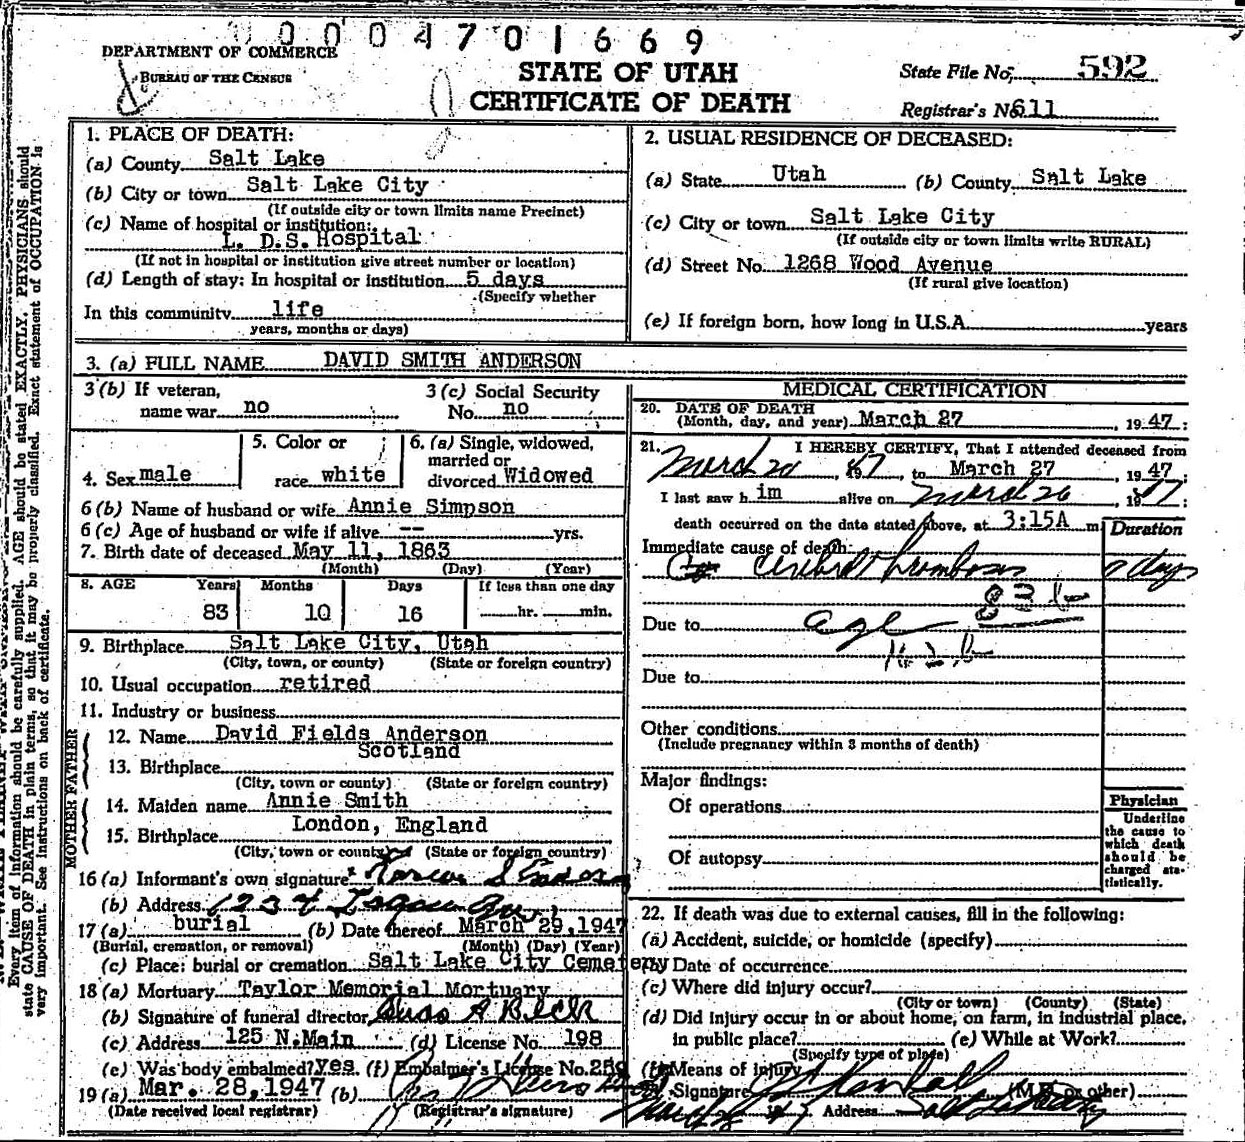 0004701669
DEPARTMENT OF COMMERCE
BUREAU OF THE CENSUS
STATE OF UTAH
CERTIFICATE OF DEATH
State File No. 592
Registrar's No. 611
1. PLACE OF DEATH:
(a) County Salt Lake
(b) City or town Salt Lake City
(If outside city or town limits name Precinct)
(c) Name of hospital or institution:
L. D.S. Hospital
(If not in hospital or institution give street number or location)
(d) Length of stay: In hospital or institution 5 days
(Specify whether
In this community life
years, months or days)
2. USUAL RESIDENCE OF DECEASED:
(a) State Utah (b) County Salt Lake
(c) City or town Salt Lake City
(If outside city or town limits write RURAL)
(d) Street No. 1268 Wood Avenue
(If rural give location)
(e) If foreign born, how long in U.S.A. years
3. (a) FULL NAME DAVID SMITH ANDERSON
3 (b) If veteran,
name war no
3 (c) Social Security
No. no
4. Sex male
5. Color or
race white
6. (a) Single, widowed,
married or
divorced Widowed
6 (b) Name of husband or wife Annie Simpson
6 (c) Age of husband or wife if alive -- yrs.
7. Birth date of deceased May 11, 1863
(Month) (Day) (Year)
8. AGE Years Months Days If less than one day
83 10 16 hr. min.
9. Birthplace Salt Lake City, Utah
(City, town, or county) (State or foreign country)
10. Usual occupation retired
11. Industry or business
FATHER
12. Name David Fields Anderson
Scotland
13. Birthplace
(City, town or county) (State or foreign country)
MOTHER
14. Maiden name Annie Smith
London, England
15. Birthplace
(City, town or county) (State or foreign country)
16 (a) Informant's own signature
(b) Address 1234
17 (a) burial (b) Date thereof March 29, 1947
(Burial, cremation, or removal) (Month) (Day) (Year)
(c) Place: burial or cremation Salt Lake City Cemetery
18 (a) Mortuary Taylor Memorial Mortuary
(b) Signature of funeral director
(c) Address 125 N. Main (d) License No. 198
(e) Was body embalmed? yes. (f) Embalmer's License No.
19 (a) Mar. 28, 1947 (b)
(Date received local registrar) (Registrar's signature)
MEDICAL CERTIFICATION
20. DATE OF DEATH
(Month, day, and year) March 27, 1947:
21. I HEREBY CERTIFY, That I attended deceased from
March 20 47 to March 27, 1947:
I last saw him alive on March 26 1947:
death occurred on the date stated above, at 3:15A m.
Duration
Immediate cause of death:
Cerebral Thrombosis days
83 b
Due to age
Due to
Other conditions
(Include pregnancy within 3 months of death)
Major findings:
Of operations
Of autopsy
Physician
Underline
the cause to
which death
should be
charged sta-
tistically.
22. If death was due to external causes, fill in the following:
(a) Accident, suicide, or homicide (specify)
(b) Date of occurrence
(c) Where did injury occur?
(City or town) (County) (State)
(d) Did injury occur in or about home, on farm, in industrial place,
in public place? (e) While at Work?
(Specify type of place)
(f) Means of injury
Signature (M.D. or other)
Address Salt Lake City
Every item of information should be carefully supplied. AGE should be stated EXACTLY. PHYSICIANS should
state CAUSE OF DEATH in plain terms, so that it may be properly classified. Exact statement of OCCUPATION is
very important. See instructions on back of certificate.